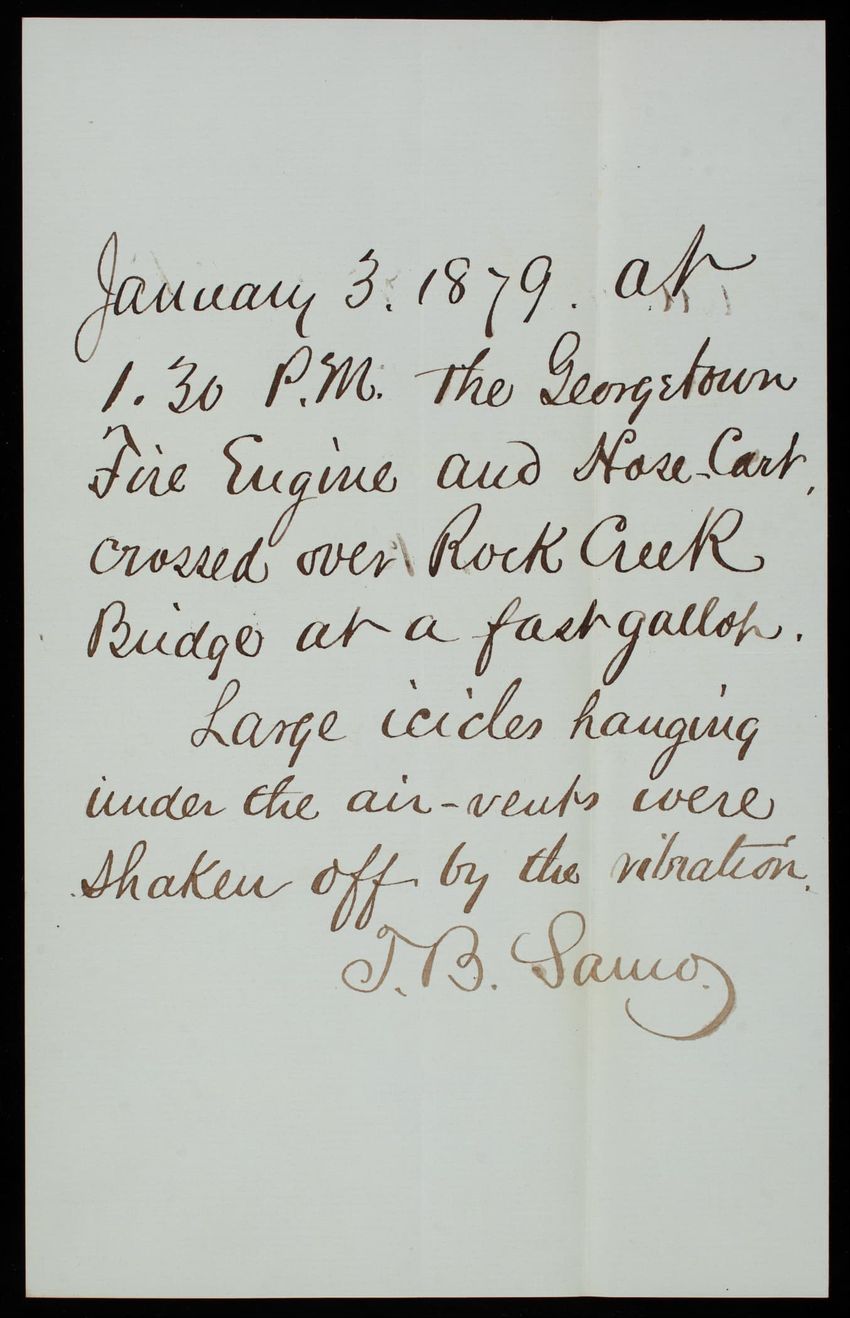 January 3. 1879. at
1.30 P.M. the Georgetown
Fire Engine and Hose-Cart,
crossed over Rock Creek
Bridge at a fast gallop.
Large icicles hanging
under the air-vents were
shaken off by the vibration.
T.B. Samo.